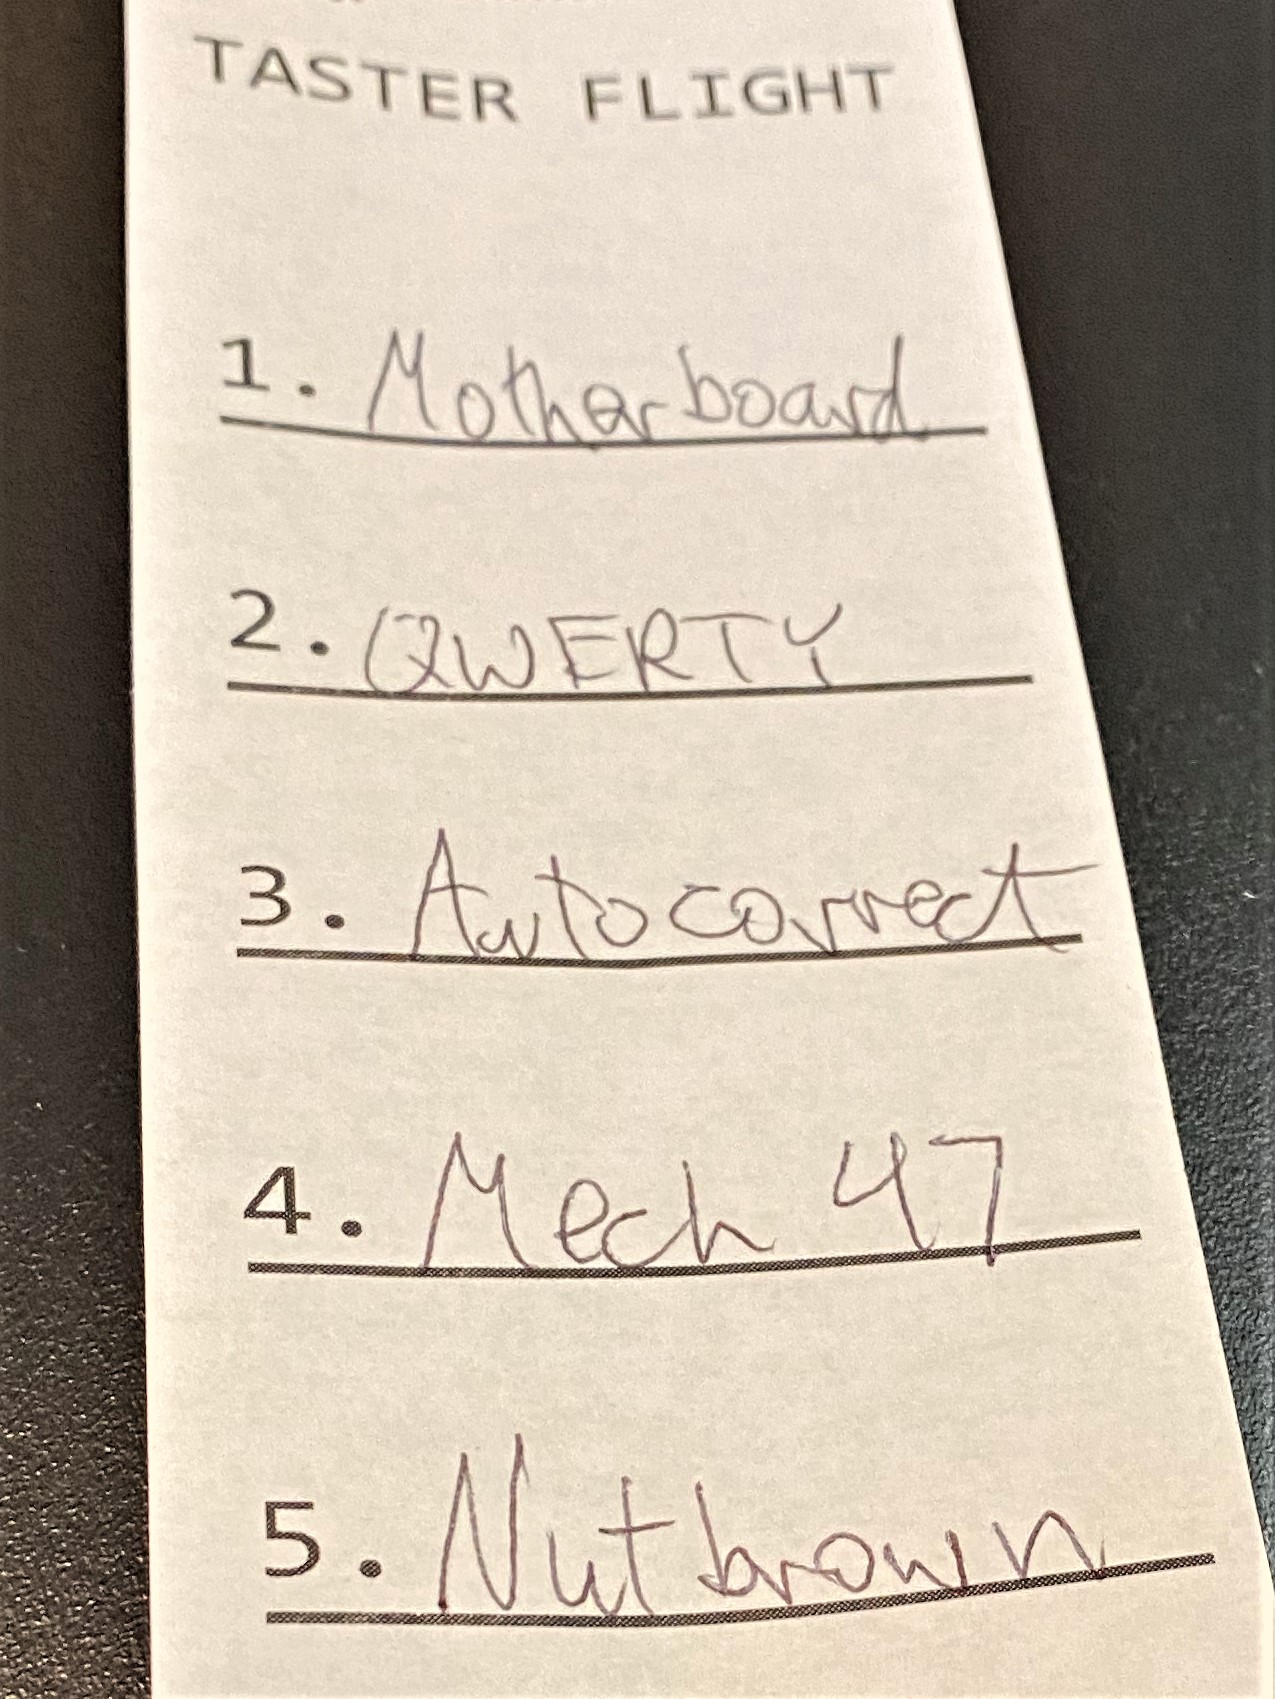 TASTER FLIGHT
1. Motherboard
2. QWERTY
3. Autocorrect
4. Mech 47
5. Nutbrown